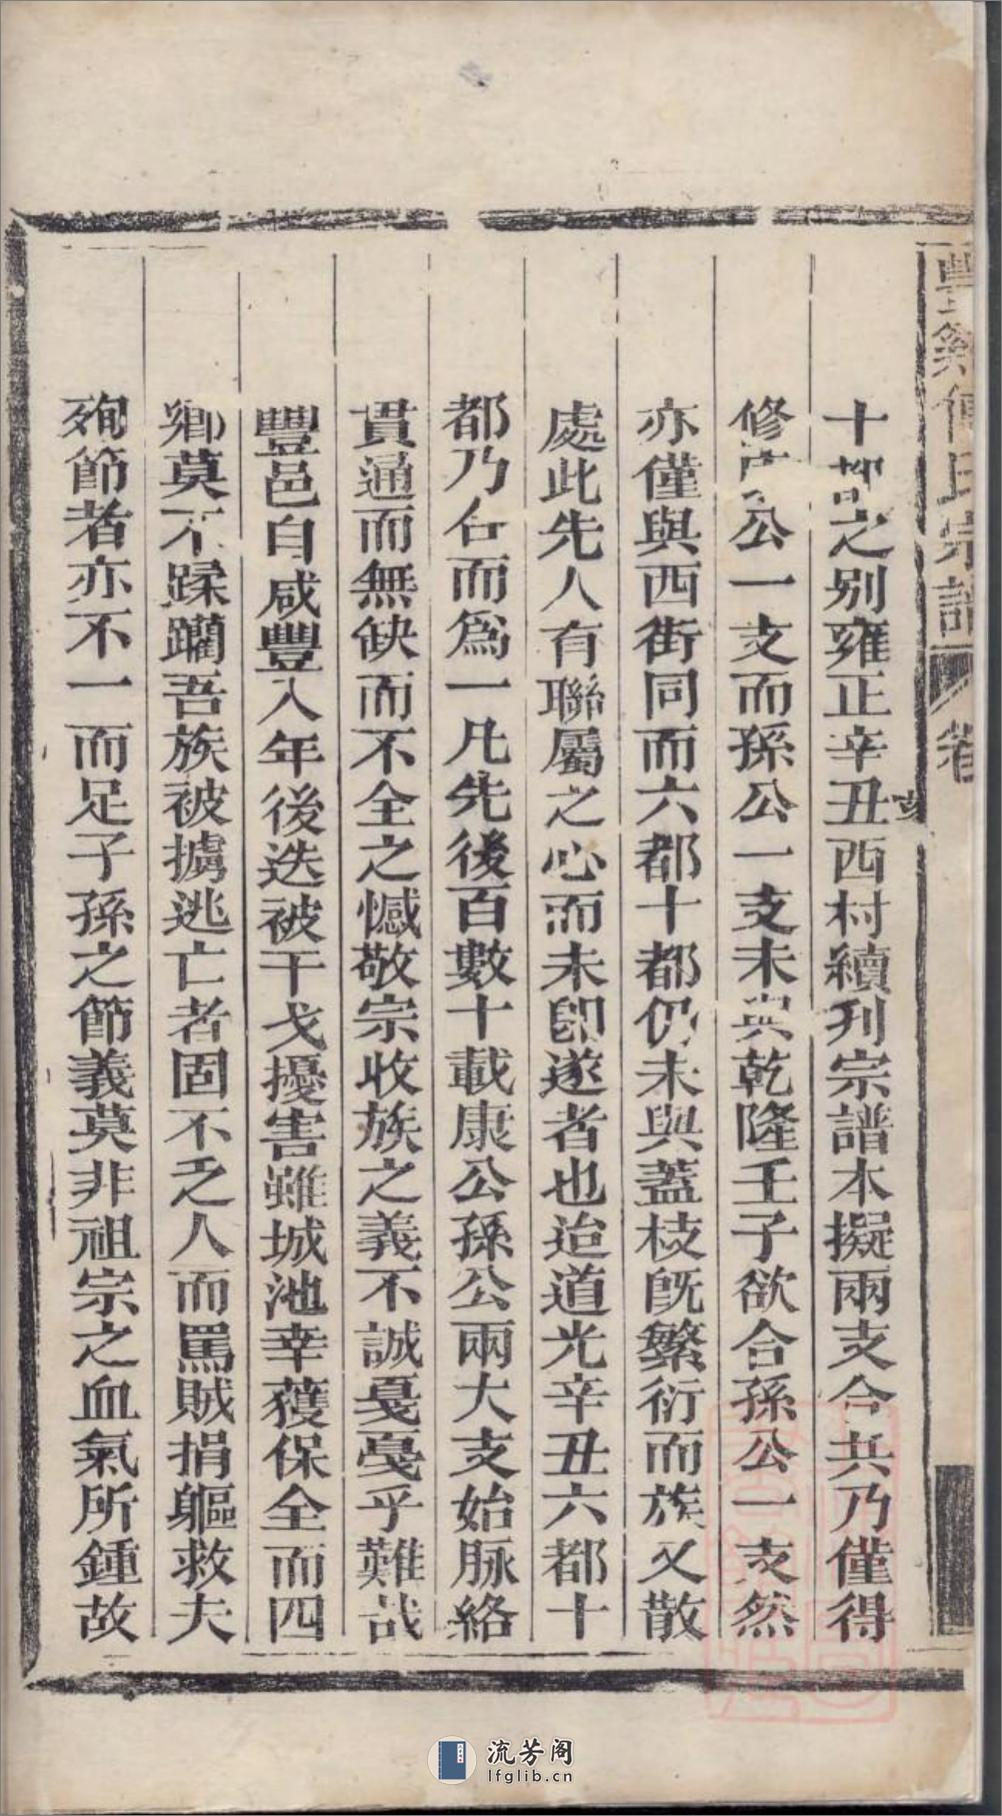 豐谿傅氏宗譜 卷
十都之別雍正辛丑西村續刋宗譜本擬兩支合共乃僅得
修康公一支而孫公一支未與乾隆壬子欲合孫公一支然
亦僅與西街同而六都十都仍未與蓋枝旣繁衍而族又散
處此先人有聯屬之心而未卽遂者也迨道光辛丑六都十
都乃合而爲一凡先後百數十載康公孫公兩大支始脉絡
貫通而無缺而不全之憾敬宗收族之義不誠戛戛乎難哉
豐邑自咸豐八年後迭被干戈擾害雖城池幸獲保全而四
鄉莫不蹂躪吾族被擄逃亡者固不乏人而罵賊捐軀救夫
殉節者亦不一而足子孫之節義莫非祖宗之血氣所鍾故
流芳阁
lfglib.cn